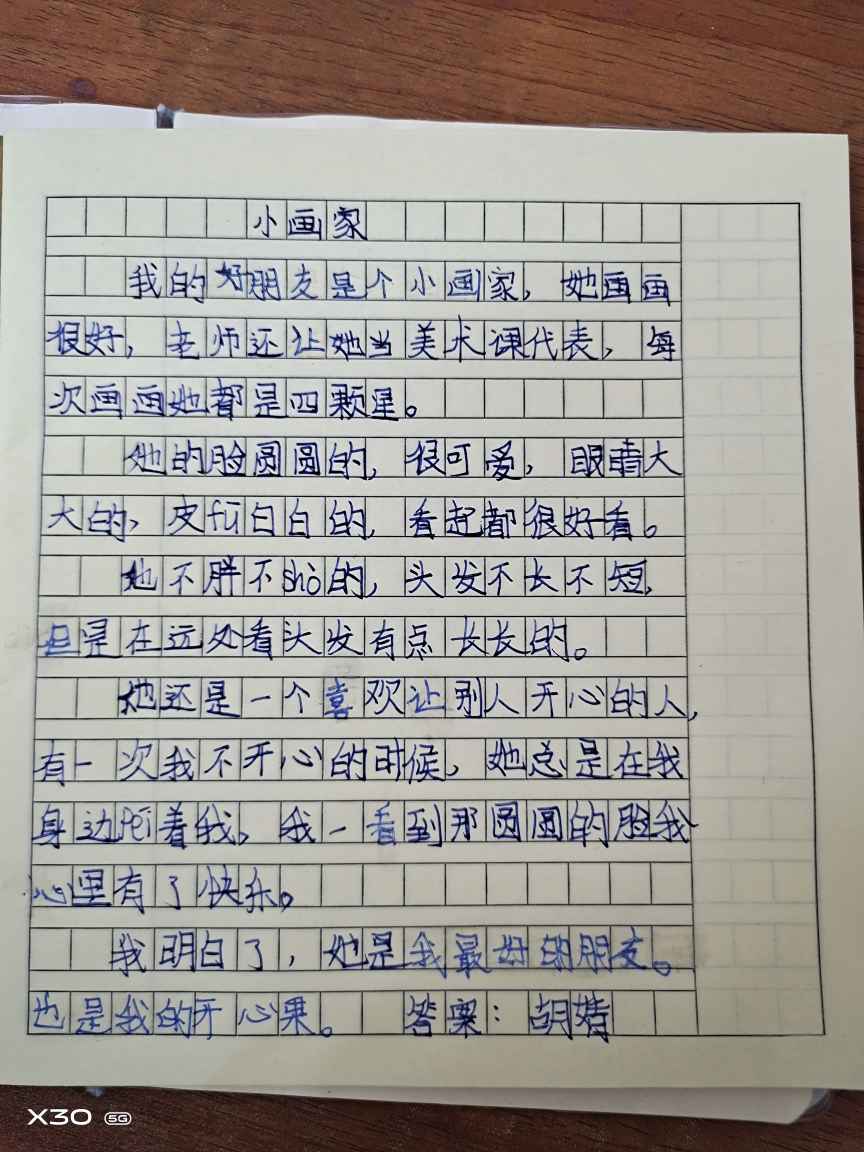 小画家
我的好朋友是个小画家，她画画
很好，老师还让她当美术课代表，每
次画画她都是四颗星。
她的脸圆圆的，很可爱，眼睛大
大的，皮fū白白的，看起都很好看。
她不胖不shò的，头发不长不短，
但是在远处看头发有点长长的。
她还是一个喜欢让别人开心的人，
有一次我不开心的时候，她总是在我
身边Péi着我，我一看到那圆圆的脸我
心里有了快乐。
我明白了，她是我最好的朋友。
也是我的开心果。 答案：胡婧
X30 5G